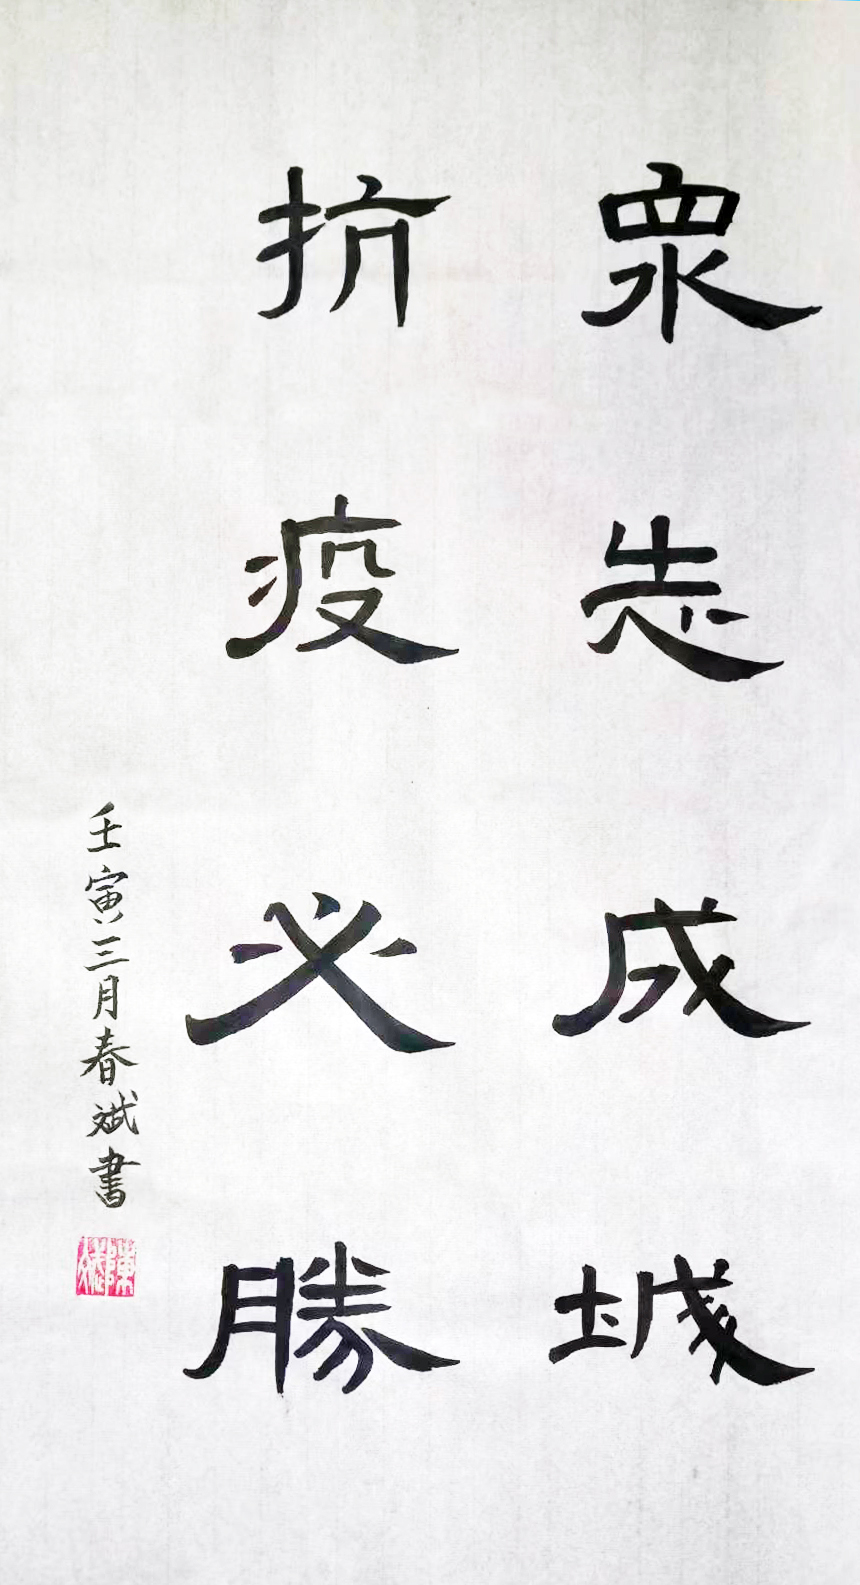 眾志成城
抗疫必勝
壬寅三月春斌書
陳斌